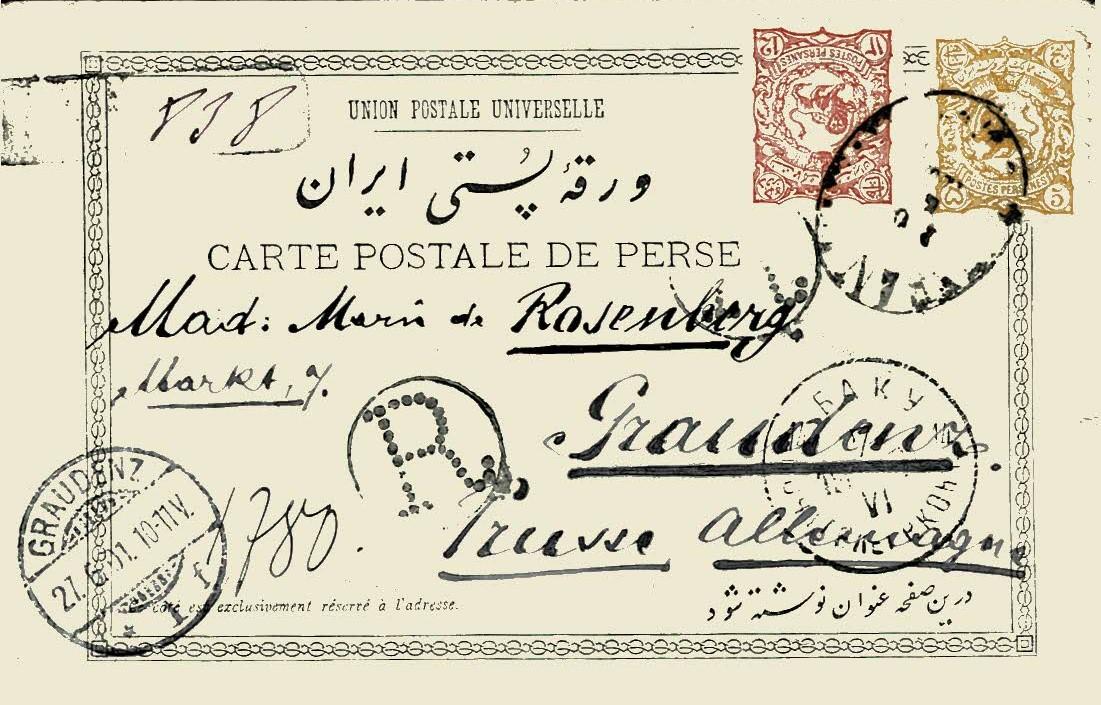 12 ١٢
POSTES PERSANES
5
POSTES PERSANES
UNION POSTALE UNIVERSELLE
ورقهٔ پُستی ایران
CARTE POSTALE DE PERSE
Mad: Marie de Rosenberg
Markt, 7.
R
Graudenz.
БАКУ
VI
Prusse Allemagne
GRAUDENZ
27.6.01. 10-11V.
* 1 f
1780.
Ce côté est exclusivement réservé à l'adresse.
درین صفحه عنوان نوشته شود